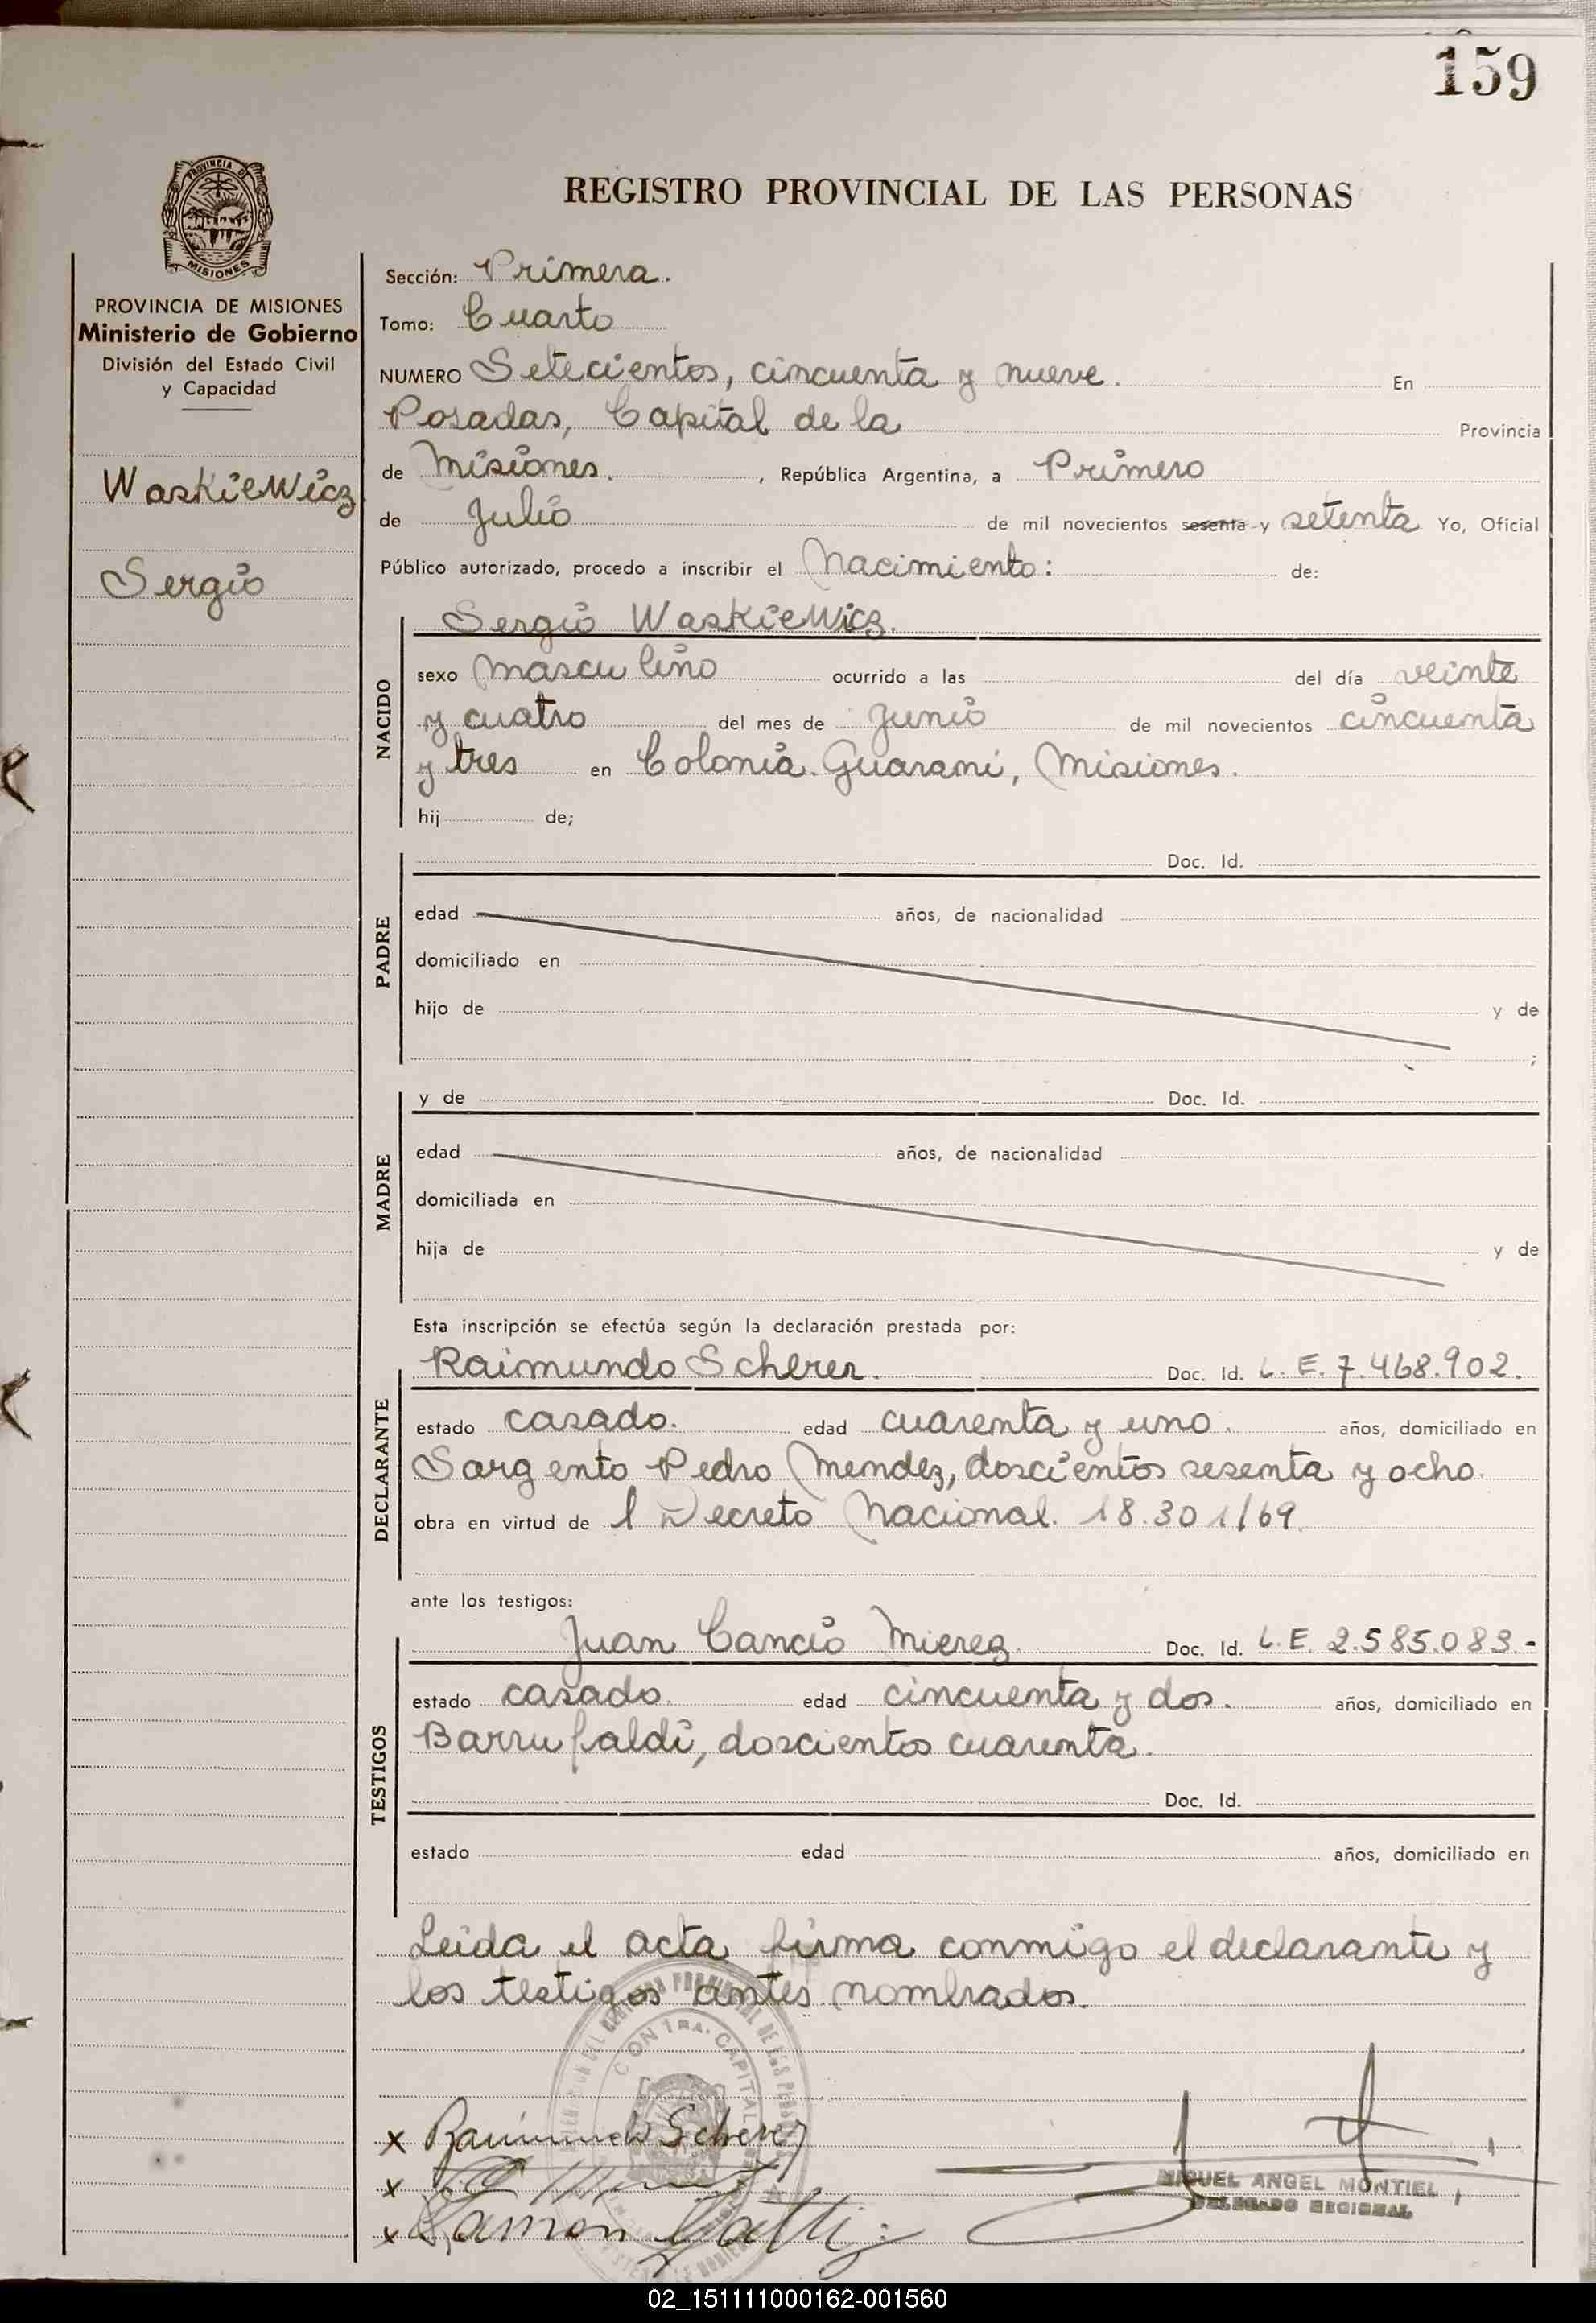 159
PROVINCIA DE
MISIONES
REGISTRO PROVINCIAL DE LAS PERSONAS
PROVINCIA DE MISIONES
Ministerio de Gobierno
División del Estado Civil
y Capacidad
Waskiewicz
Sergio
Sección: Primera.
Tomo: Cuarto
NUMERO Setecientos, cincuenta y nueve. En
Posadas, Capital de la Provincia
de Misiones. , República Argentina, a Primero
de Julio de mil novecientos sesenta y setenta Yo, Oficial
Público autorizado, procedo a inscribir el Nacimiento: de:
Sergio Waskiewicz.
NACIDO
sexo masculino ocurrido a las del día veinte
y cuatro del mes de Junio de mil novecientos cincuenta
y tres en Colonia Guarani, Misiones.
hij de;
PADRE
Doc. Id.
edad años, de nacionalidad
domiciliado en
hijo de y de
;
MADRE
y de Doc. Id.
edad años, de nacionalidad
domiciliada en
hija de y de
Esta inscripción se efectúa según la declaración prestada por:
DECLARANTE
Raimundo Scherer. Doc. Id. L.E. 7.468.902.
estado casado. edad cuarenta y uno. años, domiciliado en
Sargento Pedro Mendez, doscientos sesenta y ocho.
obra en virtud de l Decreto Nacional. 18.301/69.
ante los testigos:
TESTIGOS
Juan Cancio Mierez Doc. Id. L.E. 2.585.083.-
estado casado. edad cincuenta y dos. años, domiciliado en
Barrufaldi, doscientos cuarenta.
Doc. Id.
estado edad años, domiciliado en
Leida el acta firma conmigo el declarante y
los testigos antes nombrados.
CAPITAL
x Raimundo Scherer
x
x Ramon
MIGUEL ANGEL MONTIEL
DELEGADO REGIONAL
02_151111000162-001560